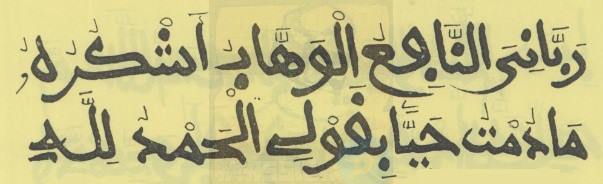 رَبَّانِيَ النَّافِعُ الْوَهَّابُ أَشْكُرُهُ
مَادُمْتُ حَيًّا بِقَوْلِي الْحَمْدُ لِلَّهِ